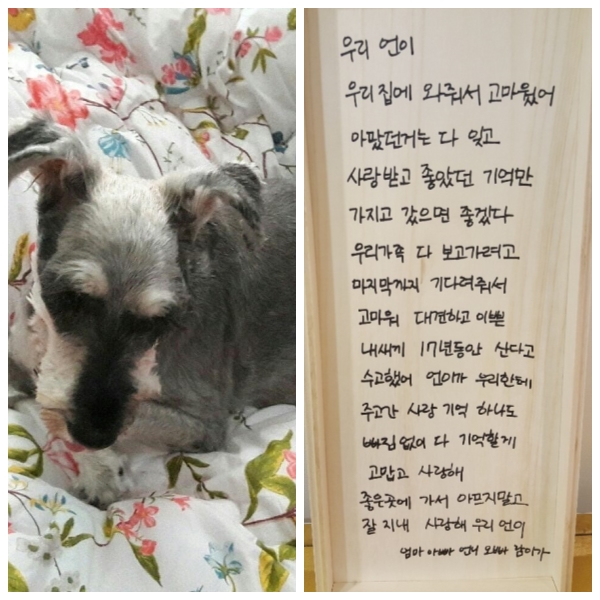 우리 언이
우리집에 와줘서 고마웠어
아팠던거는 다 잊고
사랑받고 좋았던 기억만
가지고 갔으면 좋겠다
우리가족 다 보고가려고
마지막까지 기다려줘서
고마워 대견하고 이쁜
내새끼 17년동안 산다고
수고했어 언이가 우리한테
주고간 사랑 기억 하나도
빠짐없이 다 기억할게
고맙고 사랑해
좋은곳에 가서 아프지말고
잘 지내 사랑해 우리 언이
엄마 아빠 언니 오빠